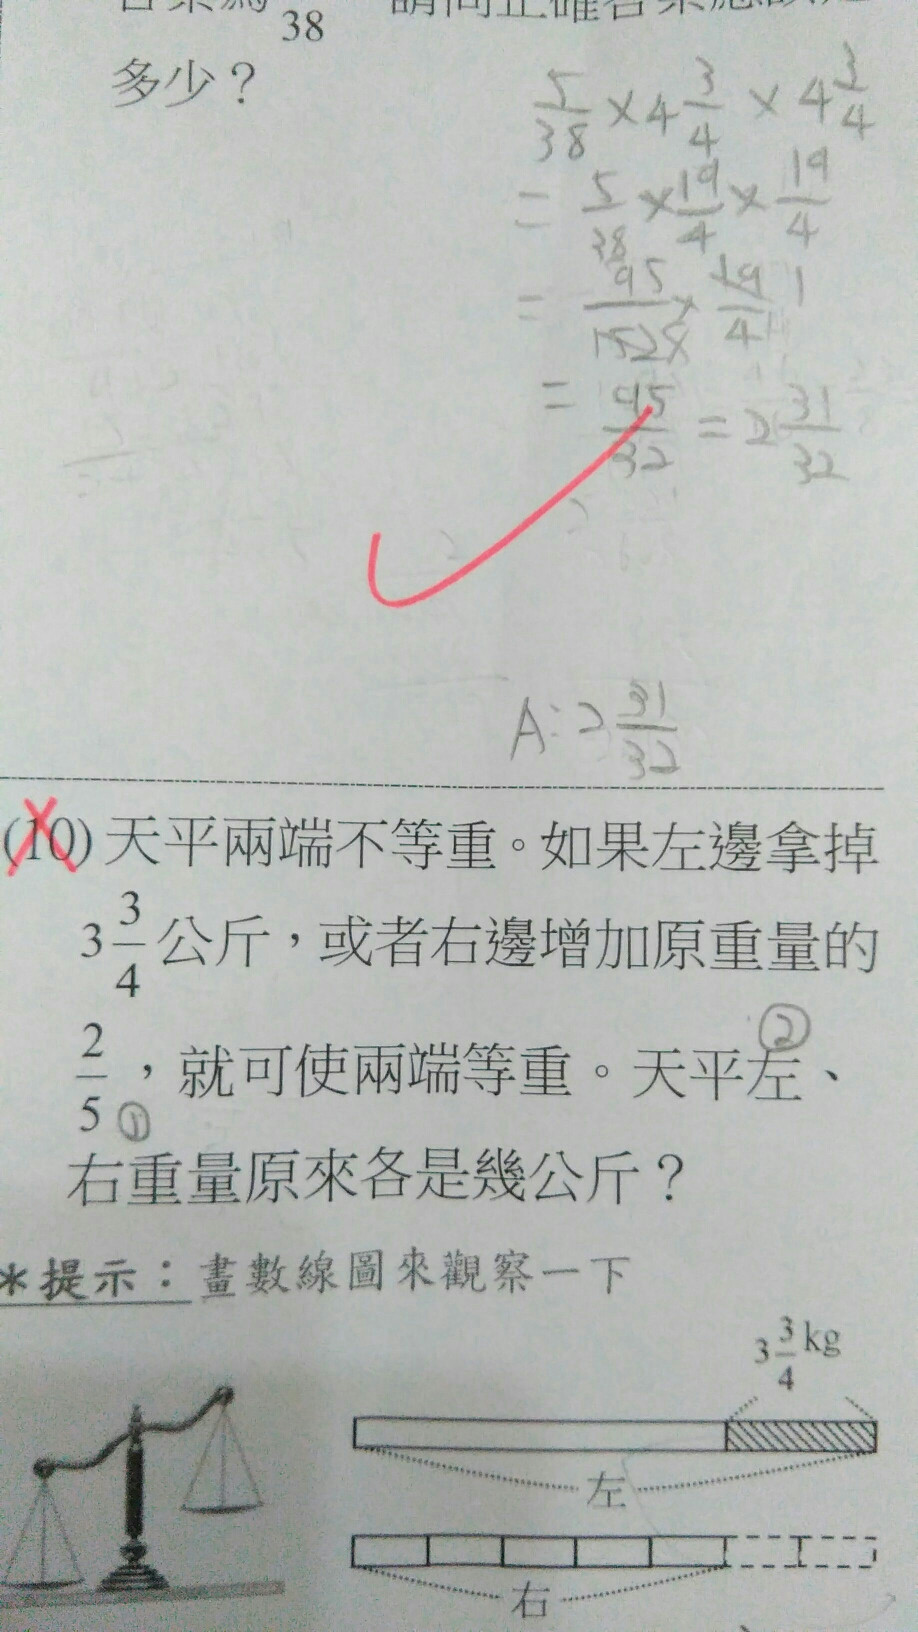 38
多少？
5/38 × 4 3/4 × 4 3/4
= 5/38 × 19/4 × 19/4
= 95/152 × 19/4
= 95/32 = 2 31/32
A: 2 31/32
(10) 天平兩端不等重。如果左邊拿掉
3 3/4 公斤，或者右邊增加原重量的
②
2/5，就可使兩端等重。天平左、
①
右重量原來各是幾公斤？
*提示：畫數線圖來觀察一下
3 3/4 kg
左
右